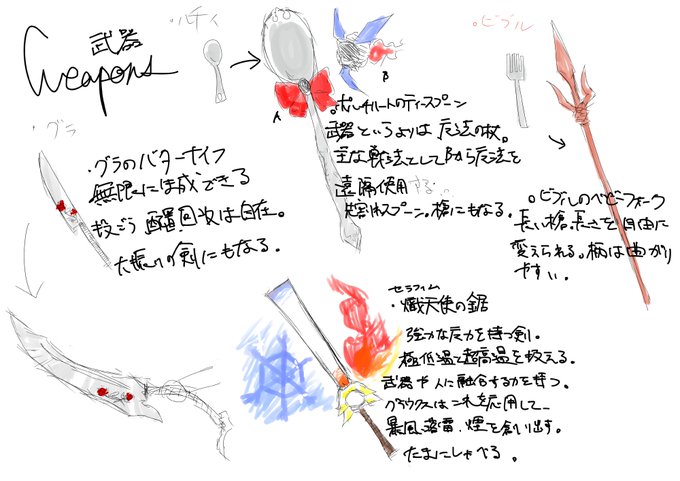 武器
Weapons
・ハティ
・ビブル
・グラ
A
B
。ポルチルートのティースプーン
武器というよりは 魔法の杖。
主な戦法としてBから魔法を
遠隔使用する。
スプーン。槍にもなる。
・グラのバターナイフ
無限に生成できる
投てき 配置 回収は自在。
大振りの剣にもなる。
。ビブルのベビーフォーク
長い槍。長さを自由に
変えられる。柄は曲がり
やすい。
セラフィム
・熾天使の鋸
強力な魔力を持つ剣。
極低温と超高温を扱える。
武器や人に融合する力を持つ。
グラウクスはこれを応用して
暴風、落雷、煙を創り出す。
たまにしゃべる。